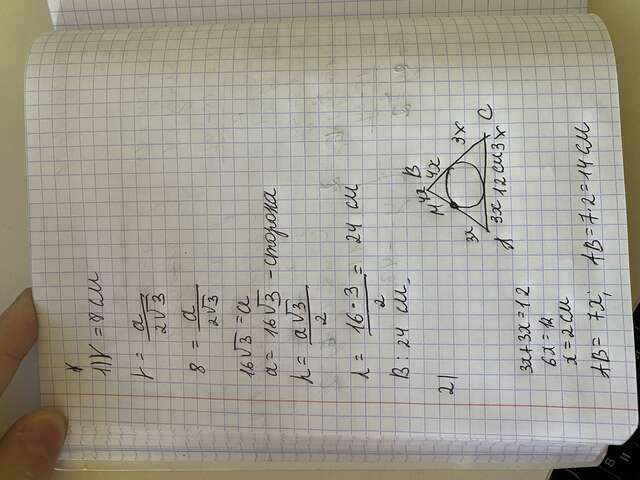 1) r = 8 см
r = a / 2√3
8 = a / 2√3
16√3 = a
a = 16√3 - сторона
h = a√3 / 2
h = 16·3 / 2 = 24 см
В: 24 см
2)
B
4x 4x
M
3x 3x
A 3x 12 см 3x C
3x+3x=12
6x=12
x=2см
AB=7x; AB=7·2=14см